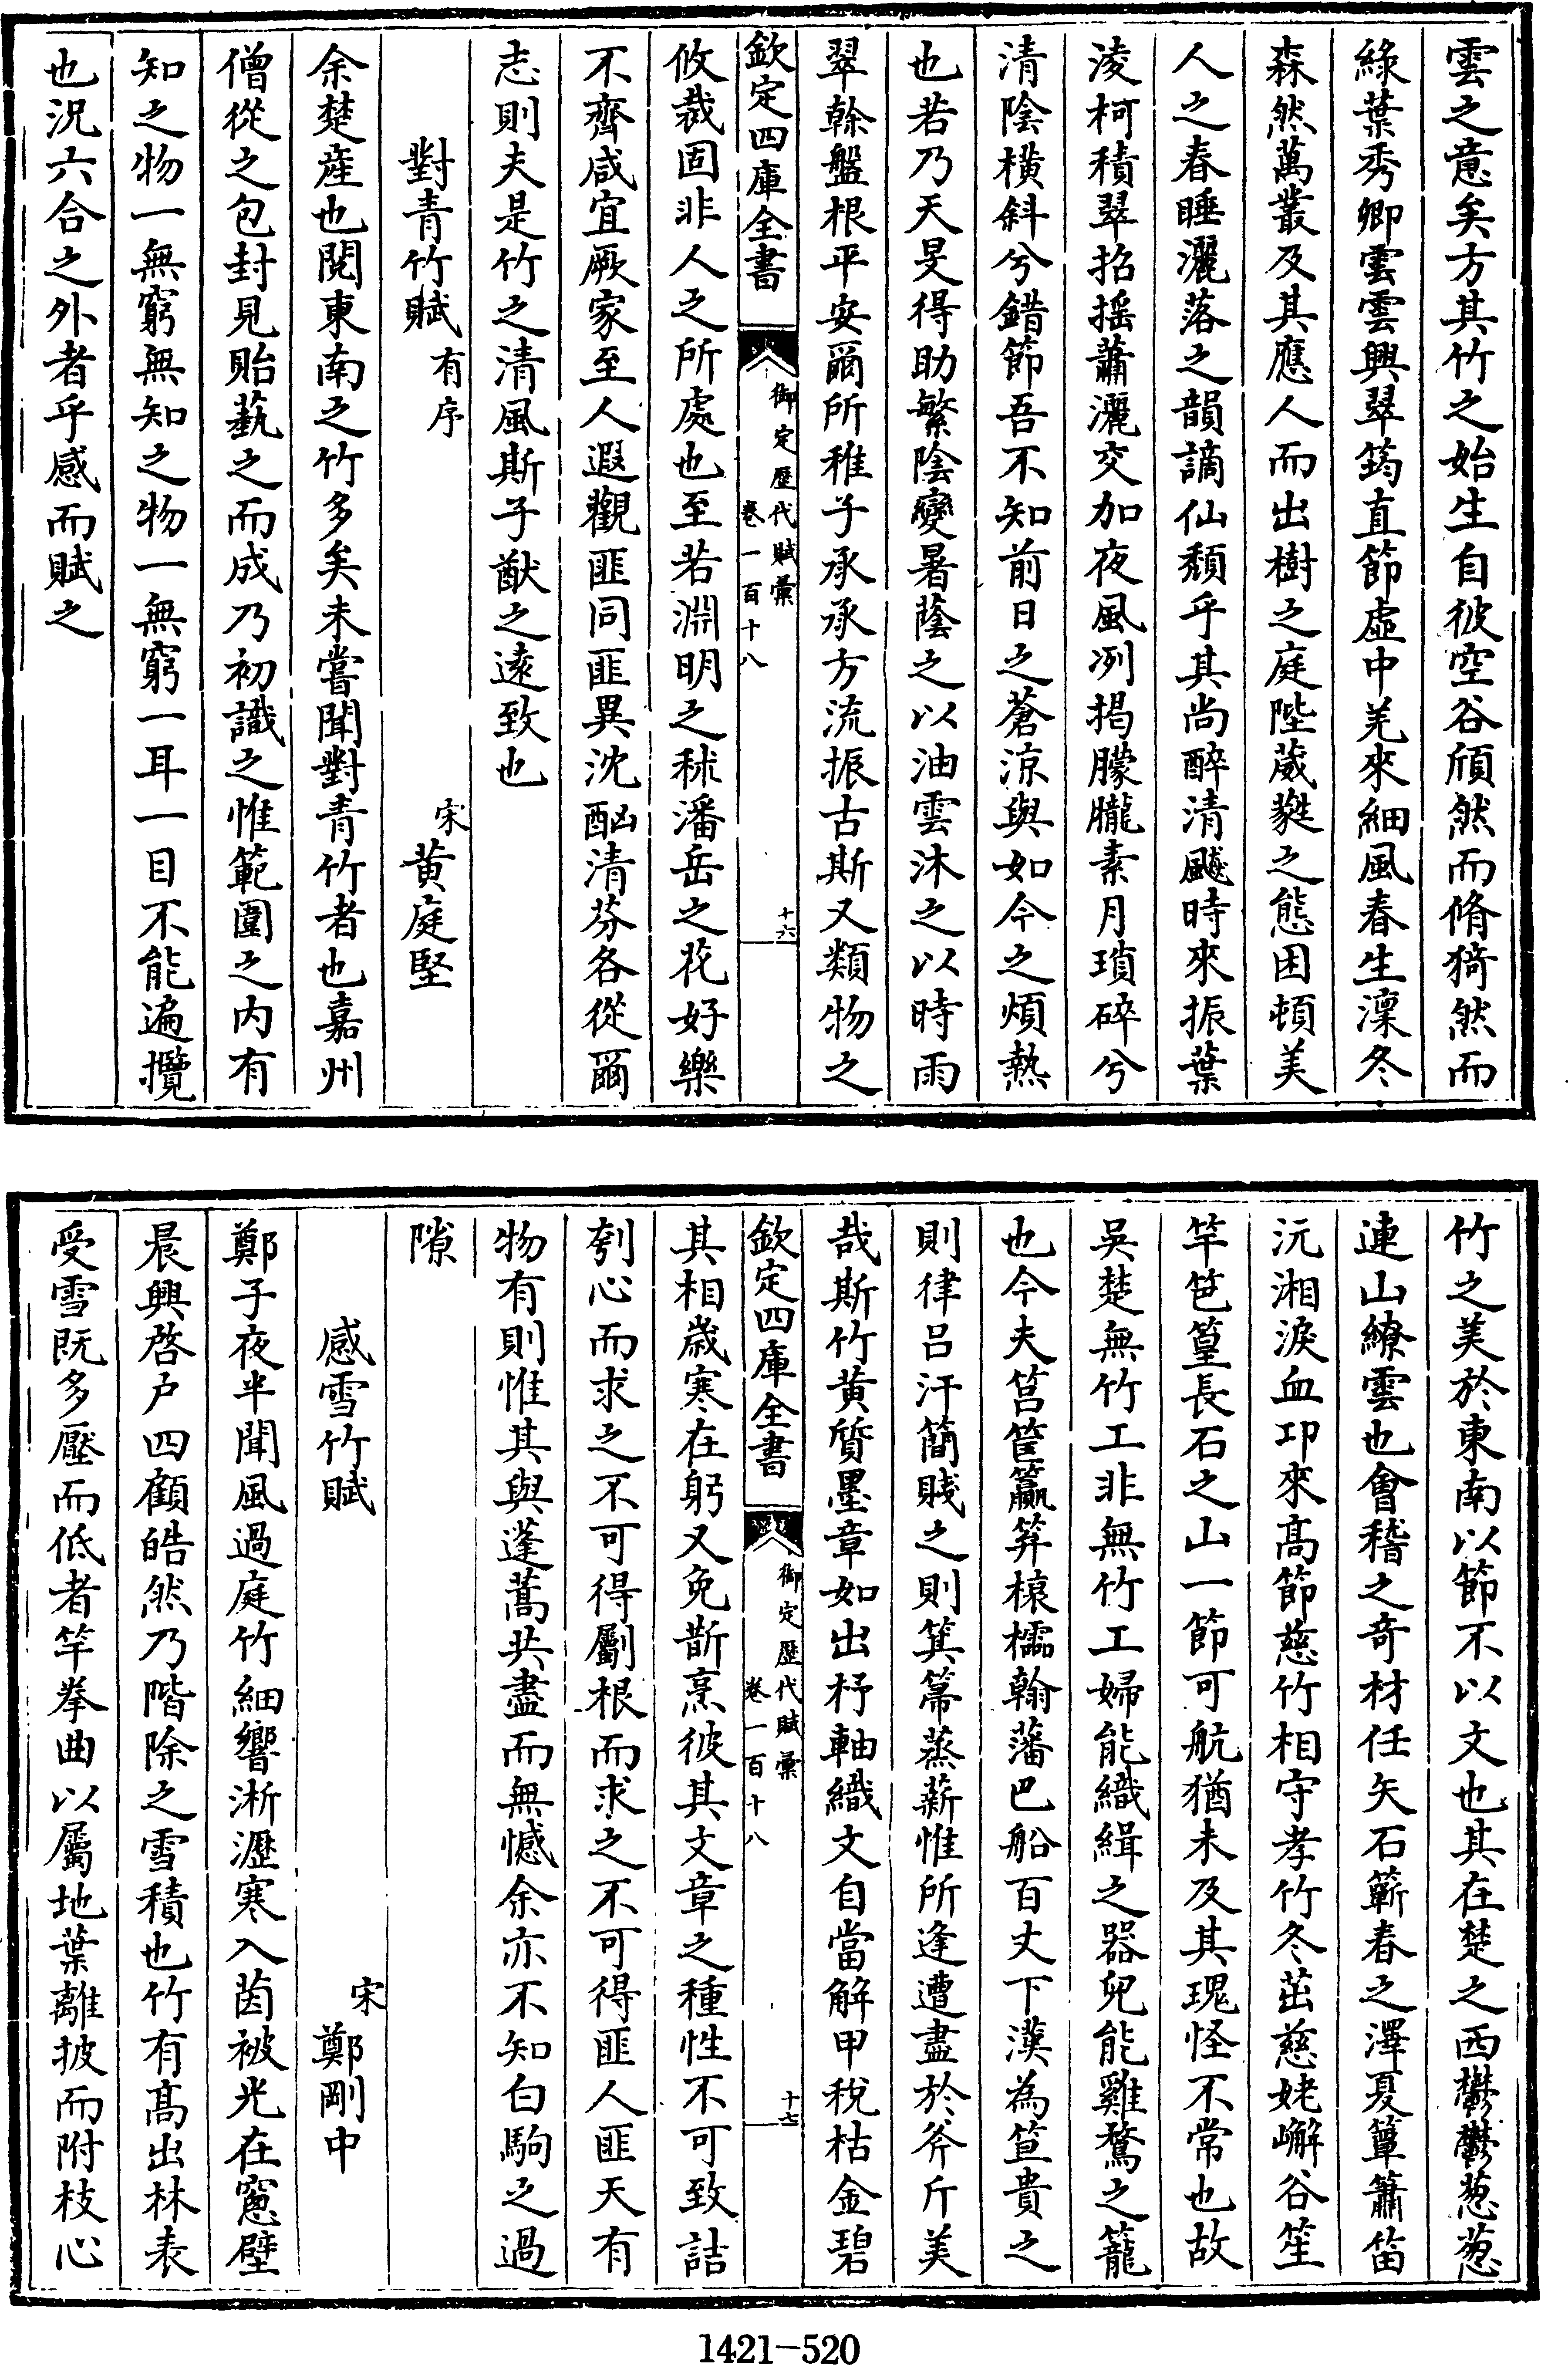 雲之意矣方其竹之始生自彼空谷頎然而脩猗然而
綠葉秀卿雲雲興翠筠直節虛中羌來細風春生凜冬
森然萬叢及其應人而出樹之庭陛葳蕤之態困頓美
人之春睡灑落之韻謫仙頹乎其尚醉清飈時來振葉
淩柯積翠招搖蕭灑交加夜風冽揭朦朧素月瑣碎兮
清陰橫斜兮錯節吾不知前日之蒼涼與如今之煩熱
也若乃天旻得助繁陰變暑蔭之以油雲沐之以時雨
翠榦盤根平安爾所稚子承承方流振古斯又類物之
欽定四庫全書
御定歷代賦彙
卷一百十八
十六
攸裁固非人之所處也至若淵明之秫潘岳之花好樂
不齊咸宜厥家至人遐觀匪同匪異沈酗清芬各從爾
志則夫是竹之清風斯子猷之遠致也
對青竹賦有序
宋黃庭堅
余楚産也閱東南之竹多矣未嘗聞對青竹者也嘉州
僧從之包封見貽蓺之而成乃初識之惟範圍之内有
知之物一無窮無知之物一無窮一耳一目不能遍攬
也況六合之外者乎感而賦之
竹之美於東南以節不以文也其在楚之西鬱鬱葱葱
連山繚雲也會稽之奇材任矢石蘄春之澤夏簟簫笛
沅湘淚血卭來高節慈竹相守孝竹冬茁慈姥嶰谷笙
竽笆篁長石之山一節可航猶未及其瑰怪不常也故
吳楚無竹工非無竹工婦能織緝之器兒能雞鶩之籠
也今夫筥筐籯笄榱檽翰藩巴船百丈下漢為笪貴之
則律呂汗簡賤之則箕箒蒸薪惟所逢遭盡於斧斤美
哉斯竹黃質墨章如出杼軸織文自當解甲稅枯金碧
欽定四庫全書
御定歷代賦彙
卷一百十八
十七
其相歲寒在躬又免斮烹彼其文章之種性不可致詰
刳心而求之不可得劚根而求之不可得匪人匪天有
物有則惟其與蓬蒿共盡而無憾余亦不知白駒之過
隙
感雪竹賦
宋鄭剛中
鄭子夜半聞風過庭竹細響淅瀝寒入茵被光在窻壁
晨興啓户四顧皓然乃階除之雪積也竹有高出林表
受雪既多壓而低者竿拳曲以屬地葉離披而附枝心
1421-520